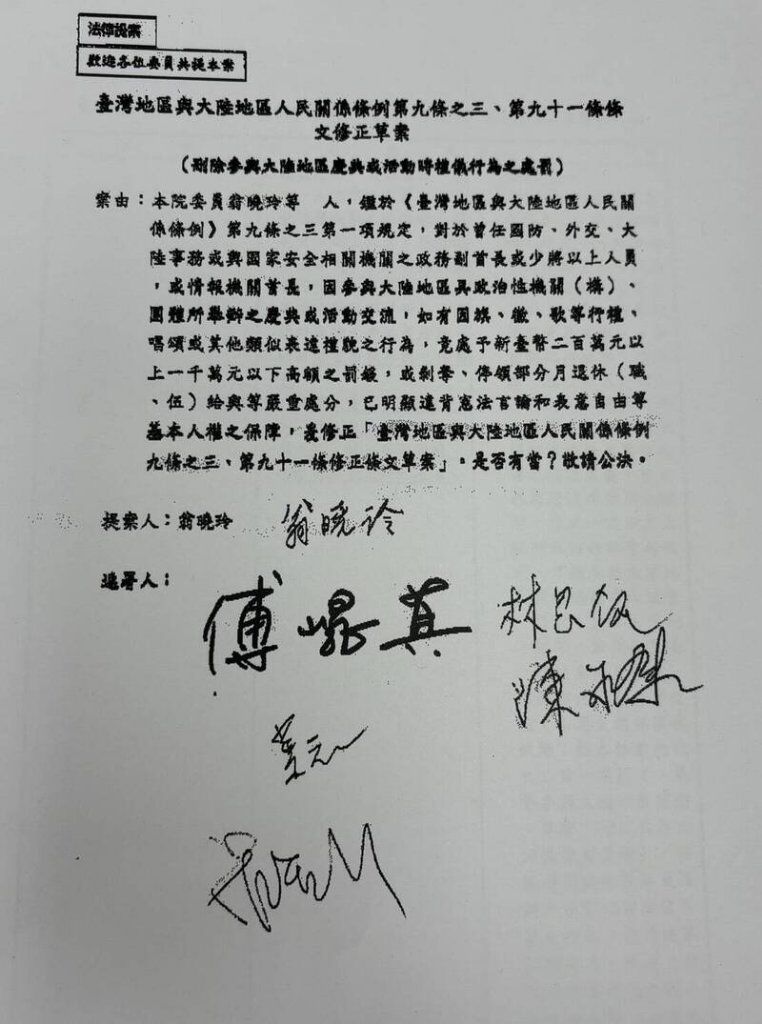 法律提案
歡迎各位委員共提本案
臺灣地區與大陸地區人民關係條例第九條之三、第九十一條條
文修正草案
（刪除參與大陸地區慶典或活動時禮儀行為之處罰）
案由：本院委員翁曉玲等　人，鑑於《臺灣地區與大陸地區人民關
係條例》第九條之三第一項規定，對於曾任國防、外交、大
陸事務或與國家安全相關機關之政務副首長或少將以上人員
，或情報機關首長，因參與大陸地區具政治性機關（構）、
團體所舉辦之慶典或活動交流，如有因旗、徽、歌等行禮、
唱頌或其他類似表達禮貌之行為，竟處予新臺幣二百萬元以
上一千萬元以下高額之罰鍰，或剝奪、停領部分月退休（職
、伍）給與等嚴重處分，已明顯違背憲法言論和表意自由等
基本人權之保障，爰修正「臺灣地區與大陸地區人民關係條例
九條之三、第九十一條修正條文草案」。是否有當？敬請公決。
提案人：翁曉玲　翁曉玲
連署人：
傅崐萁